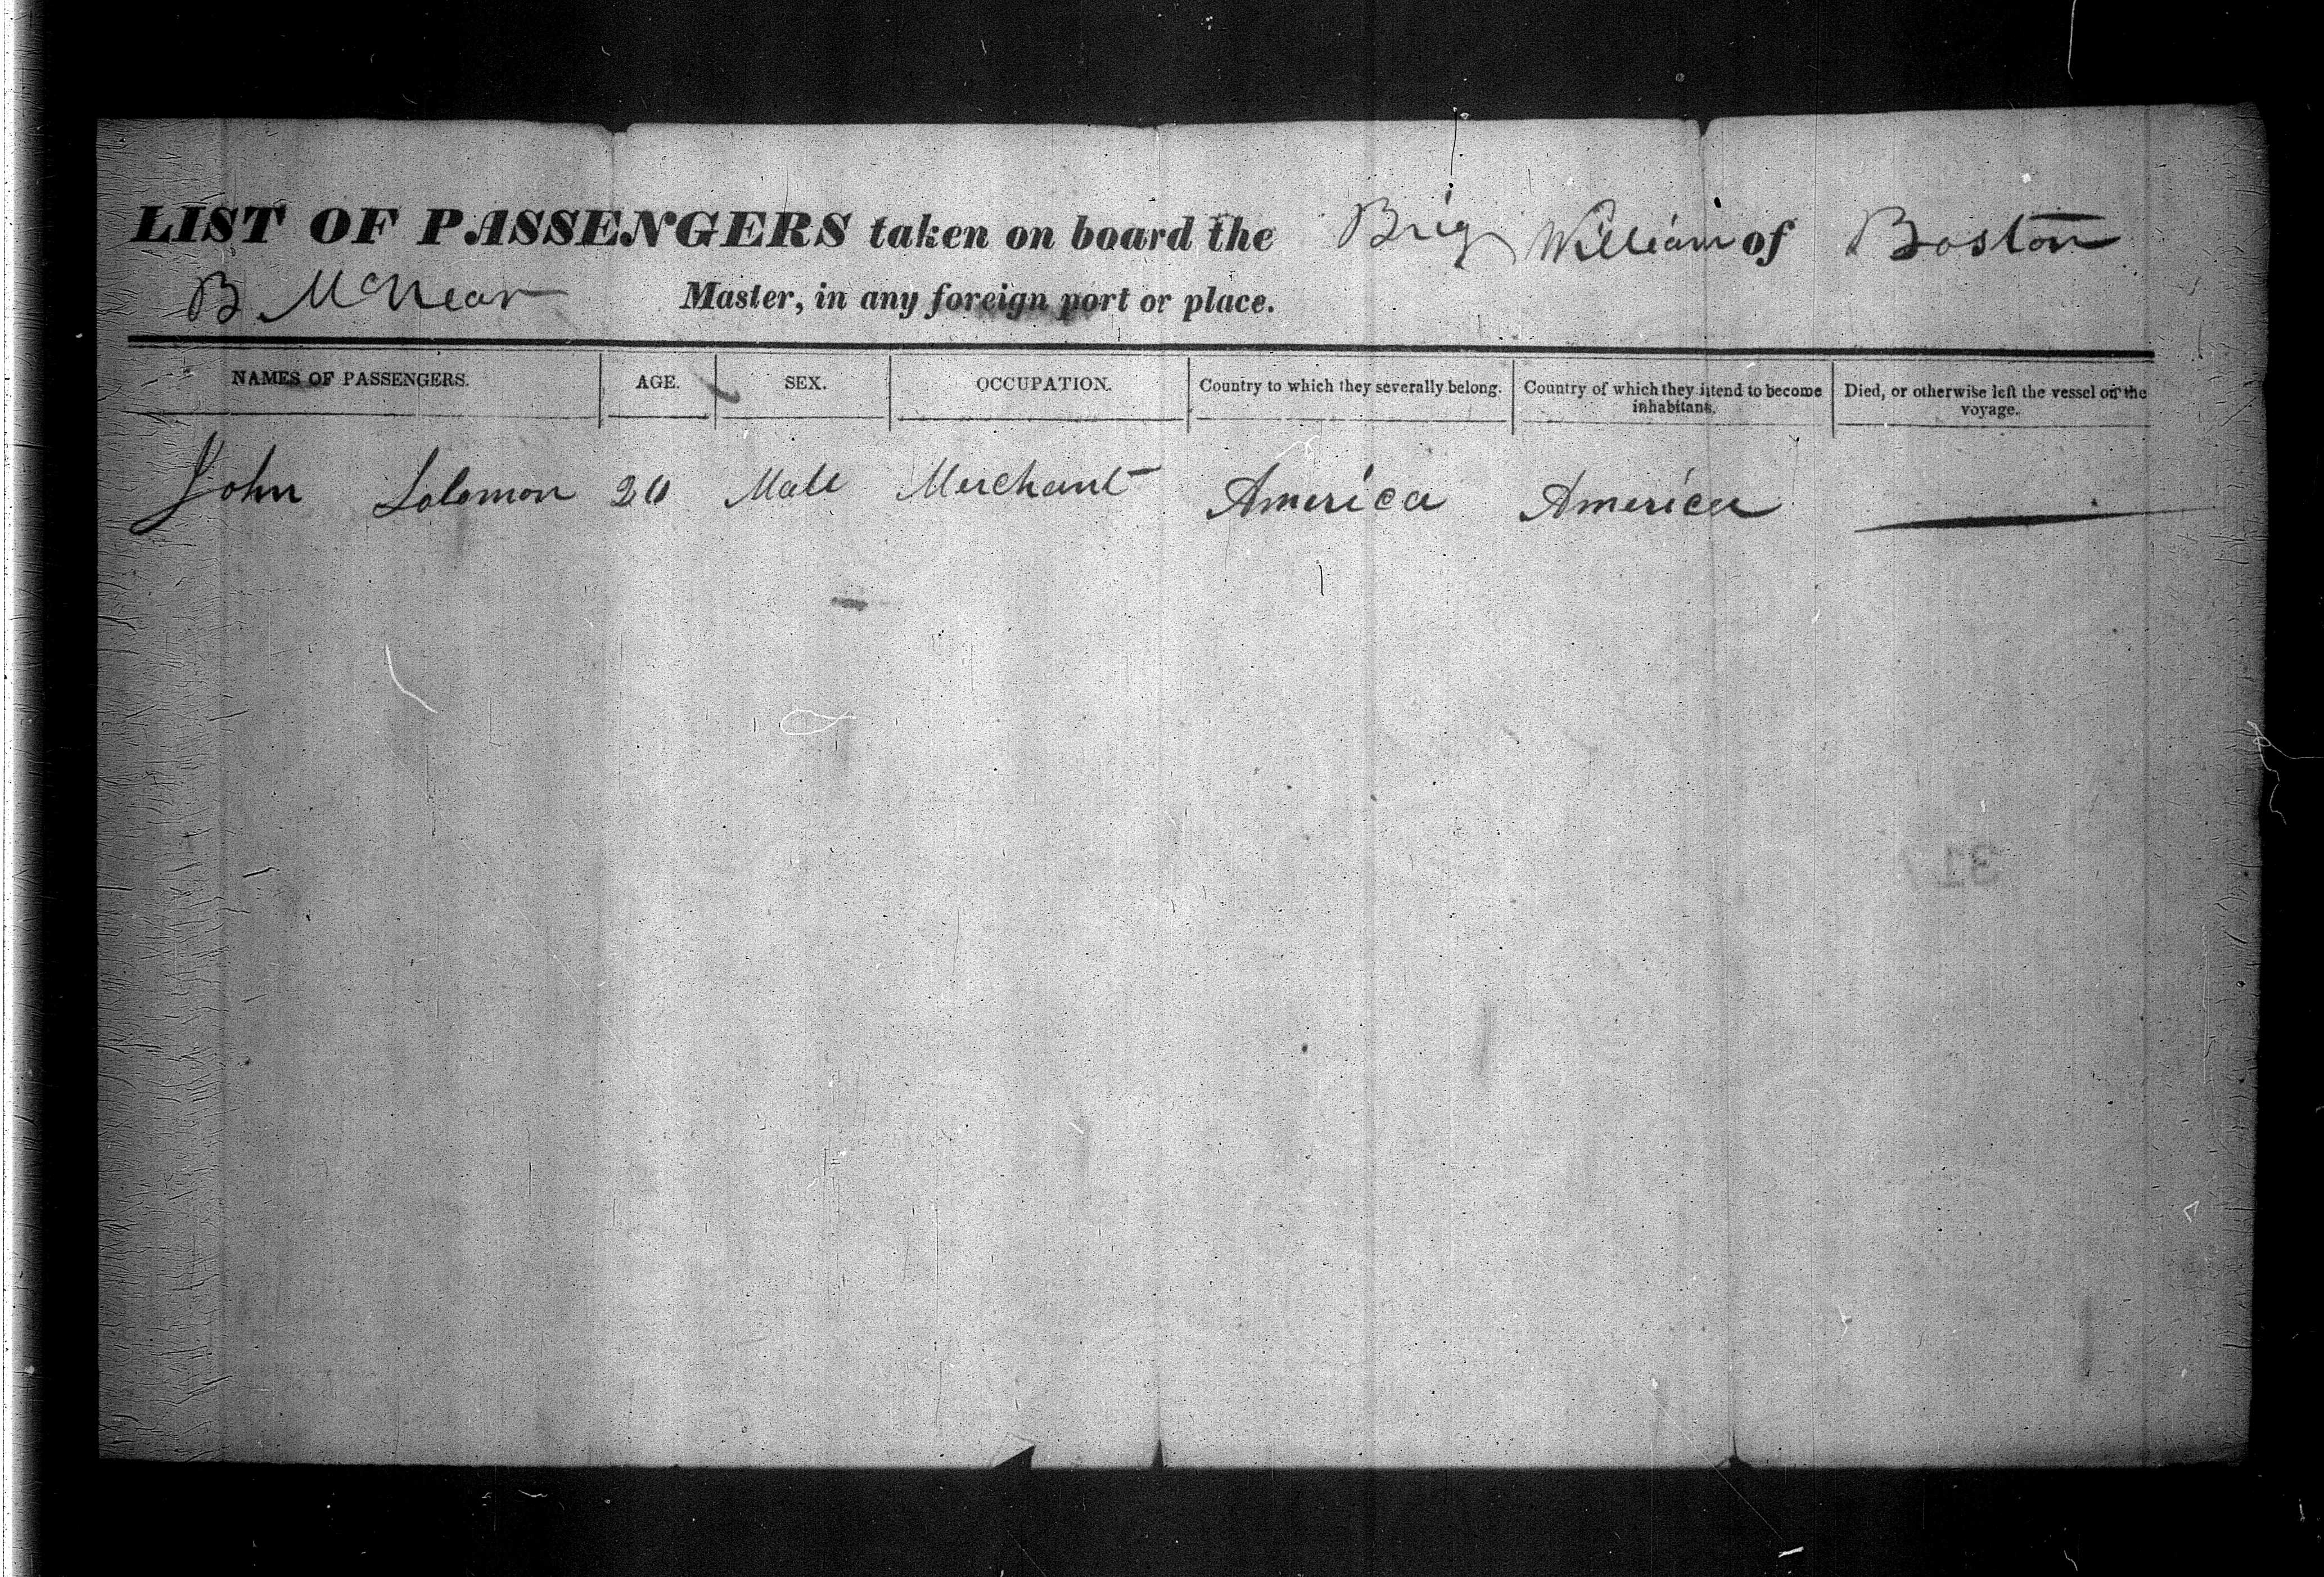 LIST OF PASSENGERS taken on board the Brig William of Boston
B McNear Master, in any foreign port or place.
NAMES OF PASSENGERS. AGE. SEX. OCCUPATION. Country to which they severally belong. Country of which they intend to become inhabitans. Died, or otherwise left the vessel on the voyage.
John Solomon 20 Male Merchant America America
317